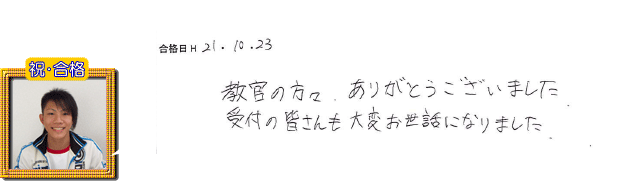 合格日H 21.10.23
祝・合格
教官の方々、ありがとうございました。
受付の皆さんも大変お世話になりました。